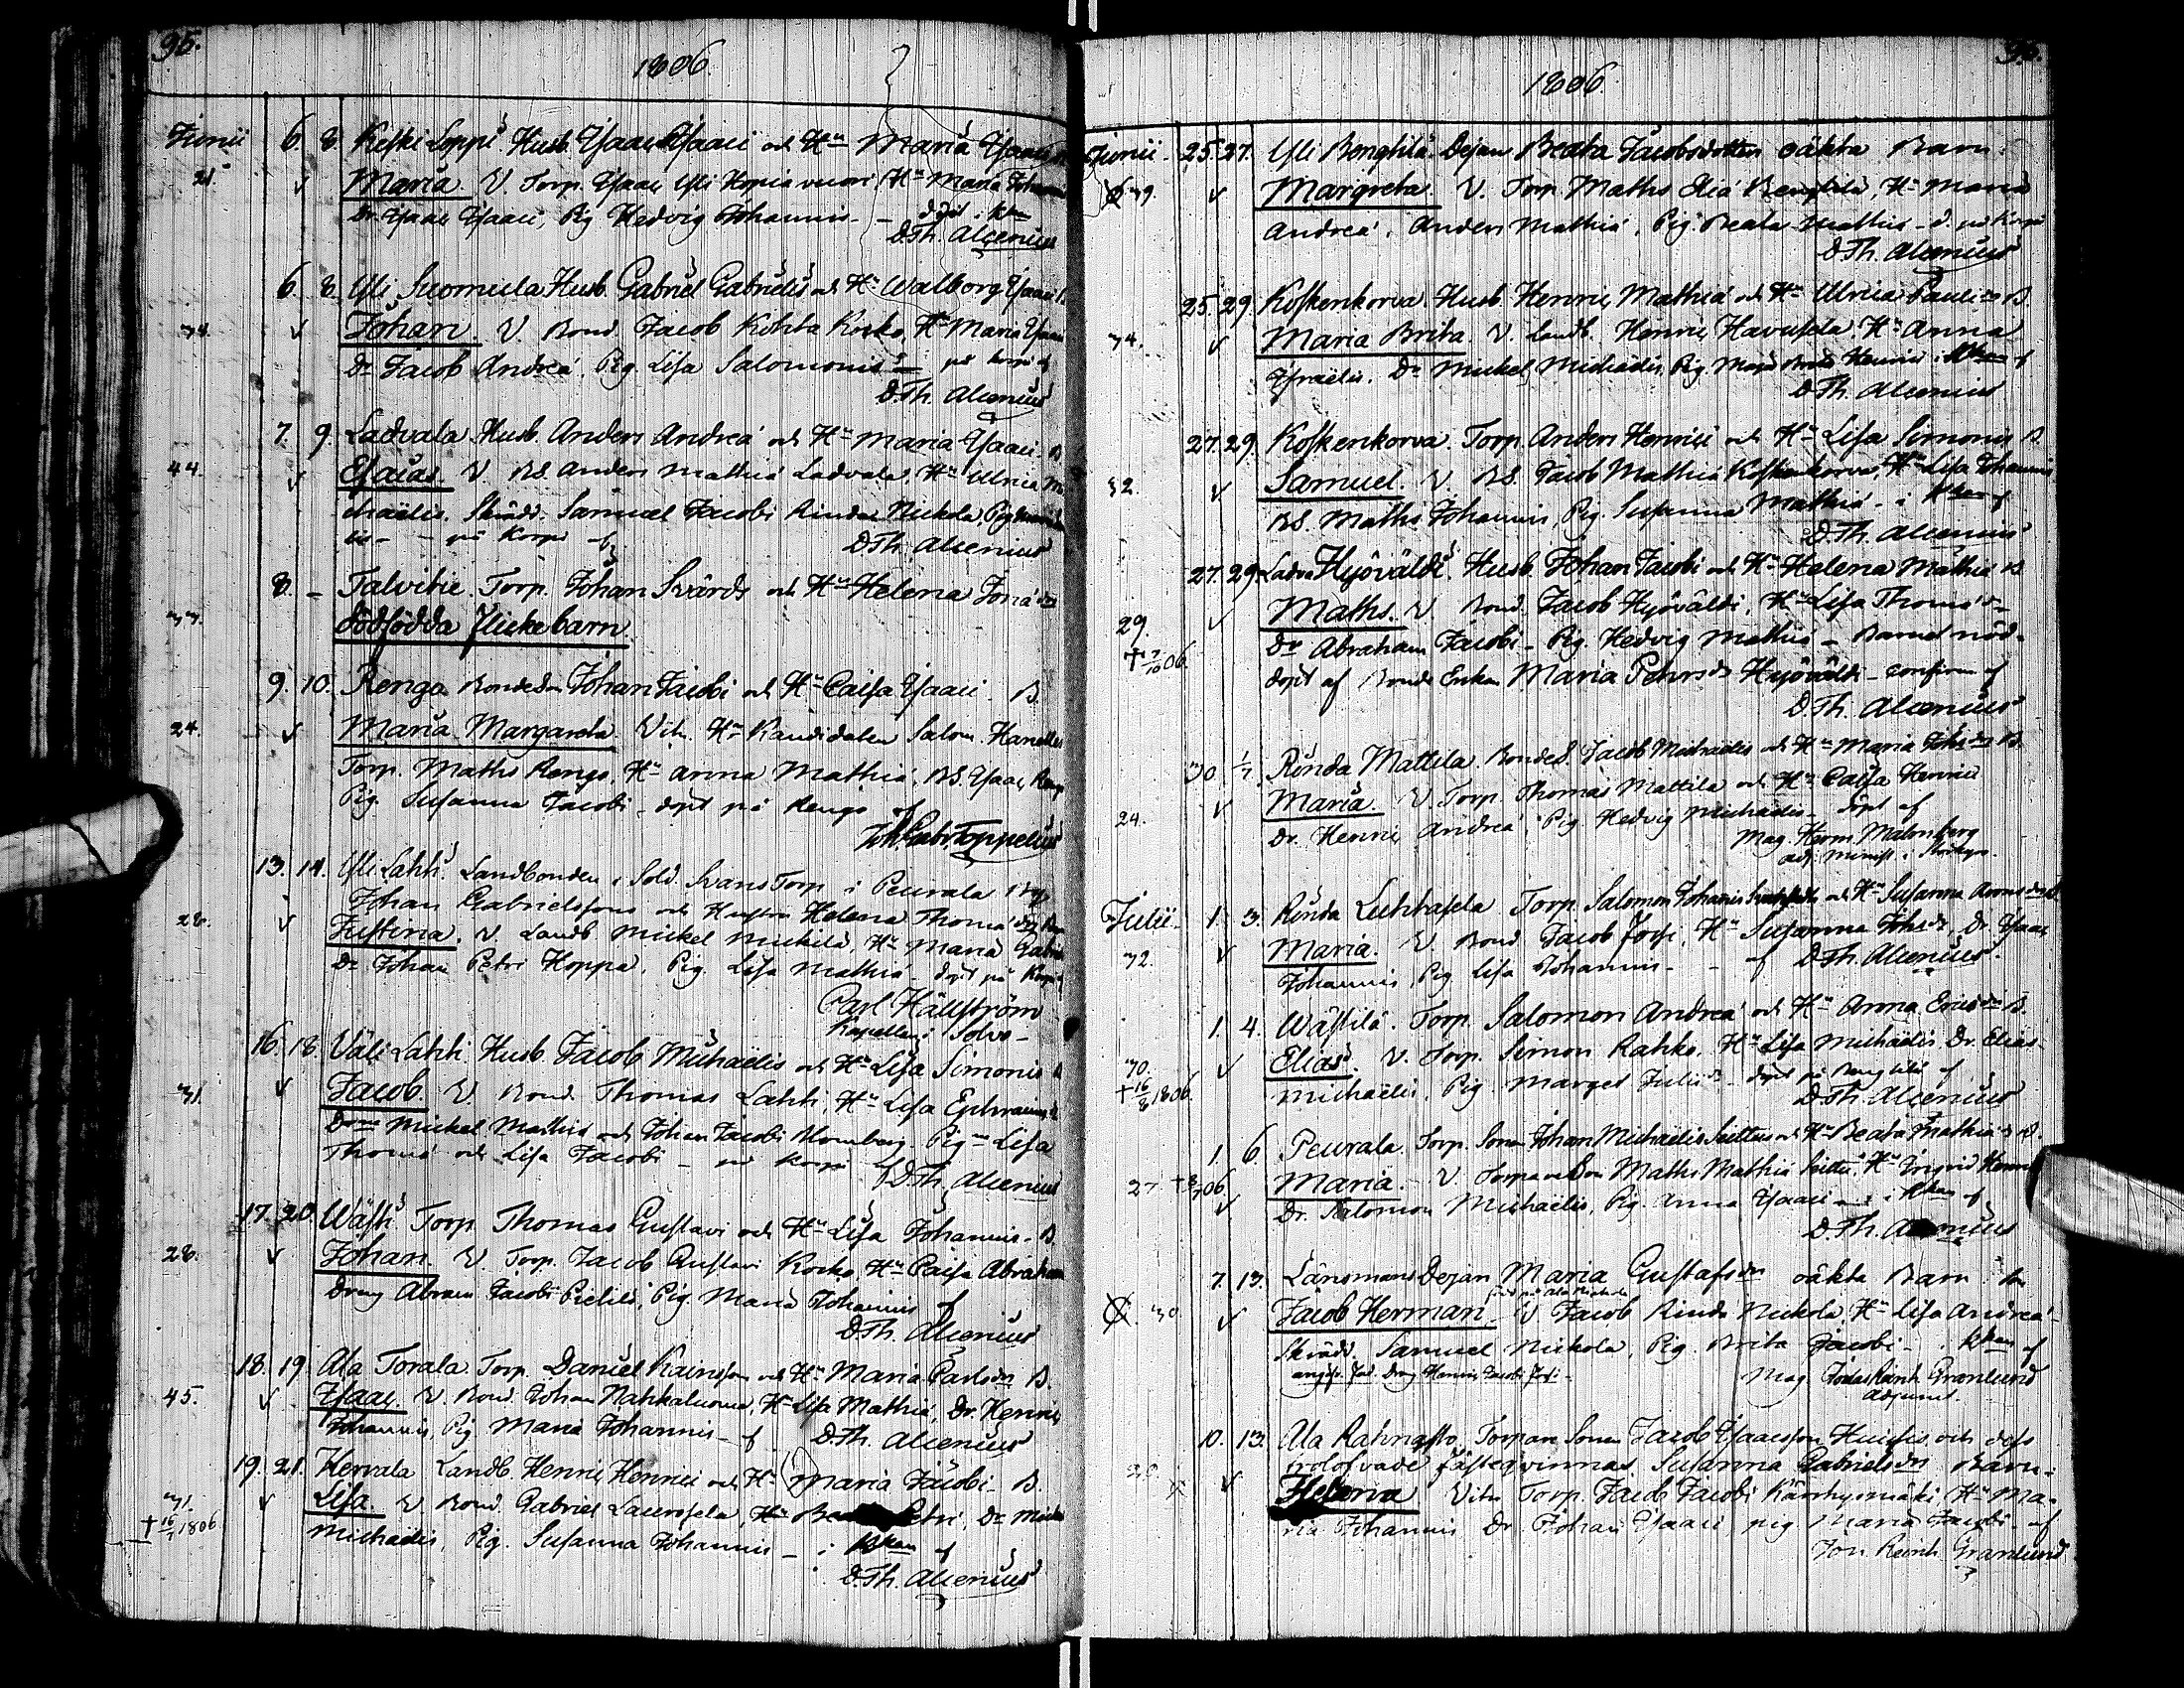 95.
1806.
Junii 6. 8. Koski Loppi Husb. Isaac Isaaci och Hu Maria Isaaci
21. Maria. V. Torp. Isaac Yli Hopiavuori, Hu Maria Johannis
Dr. Isaac Isaaci, Pig. Hedvig Johannis - döpt i Kkan
D.Th. Alcenius
6. 8. Yli Suomela Husb. Gabriel Gabrielis och Hu Walborg Isaaci B.
34. Johan V. Bond. Jacob Kohta Kosko, Hu Maria Isaaci
Dr Jacob Andreæ, Pig. Lisa Salomonis - på Korpi af
D.Th. Alcenius
7. 9. Ladvala Husb. Anders Andreæ och Hu Maria Isaaci B
44. Esaias. V. BS. Anders Mathiæ Ladvala, Hu Ulrica Mi
chaëlis. Skrädd. Samuel Jacobi Rinda Nickola Pig
- på Korpi af D.Th. Alcenius
8. - Talvitie Torp. Johan Svärds och Hu Helena Jonæ dr
37. dödfödda flickebarn.
9. 10. Rengo Bondeson Johan Jacobi och Hu Caisa Isaaci B.
24. Maria Margareta. Vitn. Hr Kandidaten Salom. Hanelles
Torp. Maths Rengo, Hu Anna Mathiæ, BS. Isaac Rengo
Pig. Susanna Jacobi - döpt på Rengo af
Joh. Gabr. Toppelius
13. 14. Yli Lahti Landbonden i Sold. Svans Torp i Peurala By
Johan Gabrielssons och Hustru Helena Thomædr Barn
28. Justina. V. Landb. Mickel Mickilä, Hu Maria Gabriels
Dr Johan Petri Hoppa, Pig. Lisa Mathiæ - döpt på Korpi af
Carl Hällström
Kapellan i Solvo -
16. 18. Väli Lahti Husb. Jacob Michaëlis och Hu Lisa Simonis B
31. Jacob. V. Bond. Thomas Lahti, Hu Lisa Ephraims
Drne Mickel Mathiæ och Johan Jacobi Blomberg. Pigne Lisa
Thomæ och Lisa Jacobi - på Korpi af D.Th. Alcenius
17. 20. Wästi Torp. Thomas Gustavi och Hu Lisa Johannis - B.
28. Johan V. Torp. Jacob Gustavi Kosko, Hu Caisa Abraham
Dreng Abram Jacobi Pietilä, Pig. Maria Johannis af
D.Th. Alcenius
18. 19. Ala Torala Torp. Daniel Kainsson och Hu Maria Carlsdr B.
45. Isaac. V. Bond. Johan Nahkaluoma, Hu Lisa Mathiæ, Dr. Henric
Johannis, Pig. Maria Johannis - af D.Th. Alcenius
19. 21. Kervala Landb. Henric Henrici och Hu Maria Jacobi B.
31. Lisa. V. Bond. Gabriel Laurosela, Hu Petri, Dr Mickel
† 16/7 1806 Michaëlis, Pig. Susanna Johannis - i Kkan af
D.Th. Alcenius
96.
1806.
Junii - 25. 27. Yli Bengtilä. Dejan Beata Jacobsdotter oäkta Barn
39. Margreta V. Torp. Maths Eliæ Bengtilä, Hu Maria
Andreæ, Anders Mathiæ, Pig. Beata Mathiæ - d. på Korpi
D.Th. Alcenius
25. 29. Koskenkorva Husb. Henric Mathiæ och Hu Ulrica Pauli dr B
34. Maria Brita. V. Landb. Henric Havusela Hu Anna
Israëlis. Dr Mickel Michaëlis, Pig. Maja Brita Henrici i Kkan af
D.Th. Alcenius
27. 29. Koskenkorva Torp. Anders Henrici och Hu Lisa Simonis B.
32. Samuel. V. BS. Jacob Mathiæ Koskenkorva, Hu Lisa Johannis
BS. Maths Johannis, Pig. Susanna Mathiæ - i Kkan af
D.Th. Alcenius
27. 29. Ladva Hyöväldi. Husb. Johan Jacobi och Hu Helena Mathiæ B
29. Maths. V. Bond. Jacob Hyöväldi, Hu Lisa Thomædr
† 7/10 06. Dr Abraham Jacobi - Pig. Hedvig Mathiæ - Barnet nöd-
döpt af Bonde Enkan Maria Pehrsdr Hyöväldi - confirm. af
D.Th. Alcenius
30. 1/7. Rinda Mattila BondeS. Jacob Michaëlis och Hu Maria Johsdr B.
24. Maria. V. Torp. Thomas Mattila och Hu Caisa Henrici
Dr. Henric Andreæ, Pig. Hedvig Michaëlis - döpt af
Mag. Herm. Malmberg
adj. minist. i Storkyro.
Julii. 1. 3. Rinda Luhtasela Torp. Salomon Johannis och Hu Susanna
32. Maria. V. Bond. Jacob Jossi, Hu Susanna Johsdr, Dr. Isaac
Johannis, Pig. Lisa Johannis - - af D.Th. Alcenius.
1. 4. Wästilä. Torp. Salomon Andreæ och Hu Anna Ericsdr B.
30. Elias. V. Torp. Simon Rahko, Hu Lisa Michaëlis, Dr. Elias
† 16/8 1806. Michaëlis, Pig. Marget Juliidr - döpt på Bengtilä af
D.Th. Alcenius
1. 6. Peurala Torp. Sonen Johan Michaëlis Svittus och Hu Beata Mathiæ B.
27. Maria. V. TorpareSon Maths Mathiæ Hu Ingrid Henrici
Dr. Salomon Michaëlis, Pig. Anna Isaaci - i Kkan af
D.Th. Alcenius
7. 13. Länsmans Dejan Maria Gustafsdr oäkta Barn
30. Jacob Herman V. Jacob Rinda Nickola, Hu Lisa Andreæ
Skrädd. Samuel Nickola, Pig. Brita Jacobi - i Kkan af
angifv. Fad. Dreng Henric Jacobi Jossi - Mag. Jonas Reinh. Granlund
Adjunct.
10. 13. Ala Rahnasto, Torpare Sonen Jacob Isaacsson Huissis och dess
trolofvade fästeqvinnas Susanna Gabrielsdr Barn -
20. Helena Vitn. Torp. Jacob Jacobi Kärrhysmäki, Hu Ma-
ria Johannis, Dr Johan Isaaci, pig. Maria Jacobi - af
Jon. Reinh. Granlund